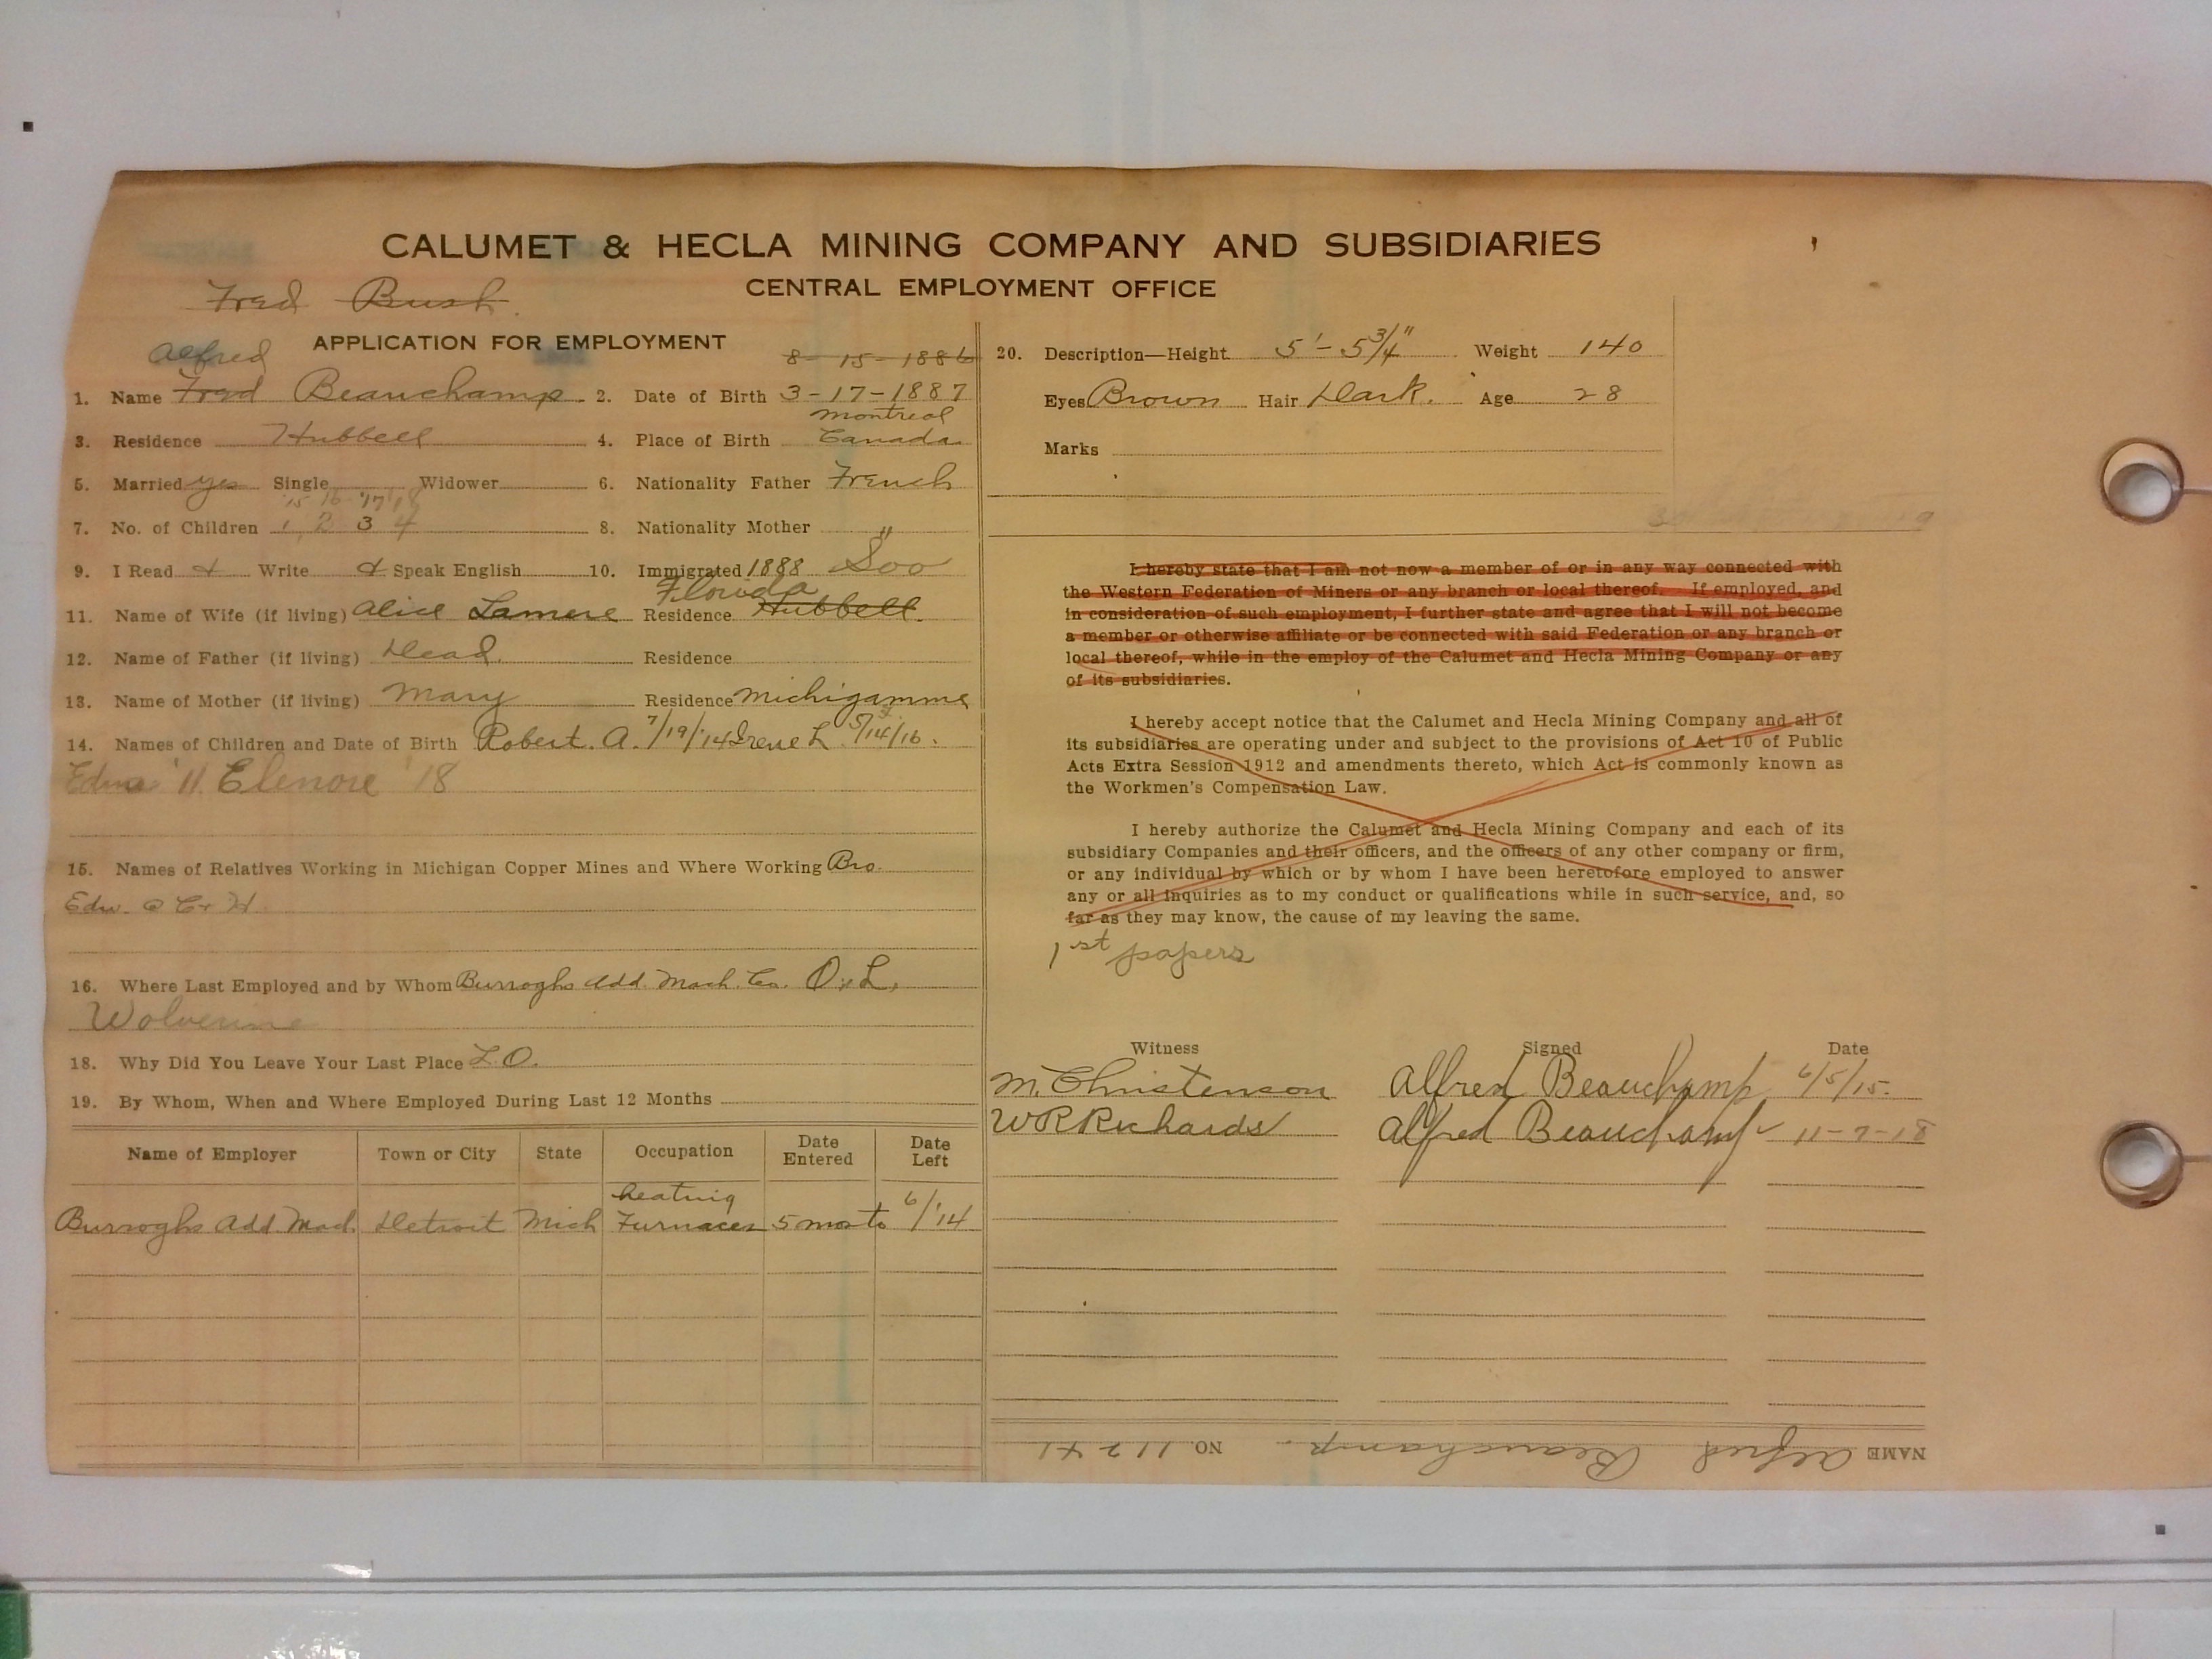 CALUMET & HECLA MINING COMPANY AND SUBSIDIARIES
CENTRAL EMPLOYMENT OFFICE
Fred Bush
APPLICATION FOR EMPLOYMENT
Alfred
8-15-1886
1. Name Fred Beauchamp 2. Date of Birth 3-17-1887
Montreal
3. Residence Hubbell 4. Place of Birth Canada
5. Married yes Single Widower 6. Nationality Father French
'15 '16 '17 '18
7. No. of Children 1 2 3 4 8. Nationality Mother "
9. I Read & Write & Speak English 10. Immigrated 1888 Soo
Florida
11. Name of Wife (if living) Alice Lamere Residence Hubbell.
12. Name of Father (if living) Dead. Residence
13. Name of Mother (if living) Mary Residence Michigamme
14. Names of Children and Date of Birth Robert. A. 7/19/'14 Irene L. 5/14/16.
Elenore '18
15. Names of Relatives Working in Michigan Copper Mines and Where Working Bro.
Edw. @ C + H
16. Where Last Employed and by Whom Burroghs Add. Mach. Co. O.L.
Wolverine
18. Why Did You Leave Your Last Place L.O.
19. By Whom, When and Where Employed During Last 12 Months
Name of Employer Town or City State Occupation Date Entered Date Left
heating
Burroghs Add. Mach. Detroit Mich Furnaces 5 mos to 6/'14
20. Description—Height 5'-5 3/4" Weight 140
Eyes Brown Hair Dark. Age 28
Marks
I hereby state that I am not now a member of or in any way connected with
the Western Federation of Miners or any branch or local thereof. If employed, and
in consideration of such employment, I further state and agree that I will not become
a member or otherwise affiliate or be connected with said Federation or any branch or
local thereof, while in the employ of the Calumet and Hecla Mining Company or any
of its subsidiaries.
I hereby accept notice that the Calumet and Hecla Mining Company and all of
its subsidiaries are operating under and subject to the provisions of Act 10 of Public
Acts Extra Session 1912 and amendments thereto, which Act is commonly known as
the Workmen's Compensation Law.
I hereby authorize the Calumet and Hecla Mining Company and each of its
subsidiary Companies and their officers, and the officers of any other company or firm,
or any individual by which or by whom I have been heretofore employed to answer
any or all inquiries as to my conduct or qualifications while in such service, and, so
far as they may know, the cause of my leaving the same.
1st papers
Witness Signed Date
M. Christenson Alfred Beauchamp 6/5/15.
W R Richards Alfred Beauchamp 11-7-18
NAME Alfred Beauchamp. NO. 11241